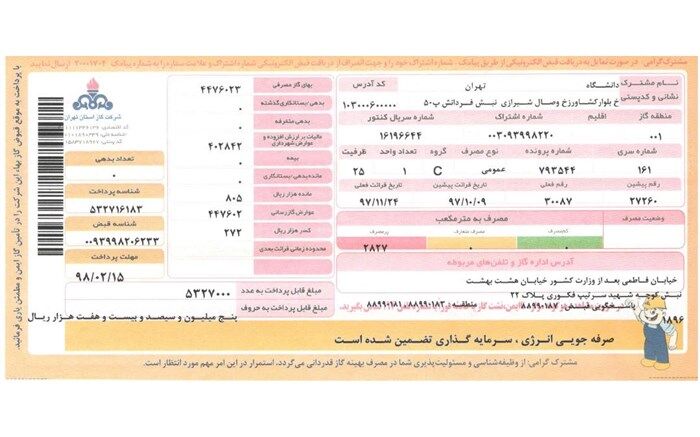 مشترک گرامی، در صورت تمایل به دریافت قبض الکترونیکی از طریق پیامک، شماره اشتراک خود را و جهت انصراف از دریافت قبض الکترونیکی شماره اشتراک و علامت ستاره را به شماره پیامک ۲۰۰۰۱۷۰۴ ارسال نمایید
نام مشترک
دانشگاه تهران
کد آدرس
نشانی و کدپستی
خ بلوارکشاورزخ وصال شیرازی نبش فردانش پ۵۰
۱۰۳۰۰۰۶۰۰۰۰۰
منطقه گاز
اقلیم
شماره اشتراک
شماره سریال کنتور
۰۰۱
۰۰۳۰۹۳۹۹۸۲۲۰
۱۶۱۹۶۶۴۴
شماره سری
شماره پرونده
نوع مصرف
گروه
تعداد واحد
ظرفیت
۱۶۱
۷۹۳۵۴۴
عمومی
C
۱
۲۵
رقم پیشین
رقم فعلی
تاریخ قرائت پیشین
تاریخ قرائت فعلی
۲۷۲۶۰
۳۰۰۸۷
۹۷/۱۰/۰۹
۹۷/۱۱/۲۴
وضعیت مصرف
مصرف به مترمکعب
کم‌مصرف
مصرف متعارف
پرمصرف
۰
۰
۲۸۲۷
آدرس اداره گاز و تلفن‌های مربوطه
خیابان فاطمی بعد از وزارت کشور خیابان هشت بهشت
نبش کوچه شهید سرتیپ فکوری پلاک ۲۲
منطقه ۸۸۹۹۰۱۸۳ ـ ۸۸۹۹۰۱۸۱
۱۸۹۶
بهای گاز مصرفی
۴۴۷۶۰۲۳
بدهی/بستانکاری گذشته
۰
بدهی متفرقه
۰
مالیات بر ارزش افزوده و عوارض شهرداری
۴۰۲۸۴۲
بیمه
۰
مانده بدهی/بستانکاری
۰
مانده هزار ریال
۸۰۵
عوارض گازرسانی
۴۴۷۶۰۲
کسر هزار ریال
۲۷۲
محدوده زمانی قرائت بعدی
مبلغ قابل پرداخت به عدد
۵۳۲۷۰۰۰
مبلغ قابل پرداخت به حروف
پنج میلیون و سیصد و بیست و هفت هزار ریال
شرکت گاز استان تهران
تعداد بدهی
۰
شناسه پرداخت
۵۳۲۷۱۶۱۸۳
شناسه قبض
۰۰۹۳۹۹۸۲۰۶۲۳۳
مهلت پرداخت
۹۸/۰۲/۱۵
صرفه جویی انرژی ، سرمایه گذاری تضمین شده است
مشترک گرامی: از وظیفه‌شناسی و مسئولیت‌پذیری شما در مصرف بهینه گاز قدردانی می‌گردد. استمرار در این امر مهم مورد انتظار است.
با پرداخت به موقع قبوض گاز بهاء، این شرکت را در تأمین گاز ایمن و مطمئن یاری فرمائید.